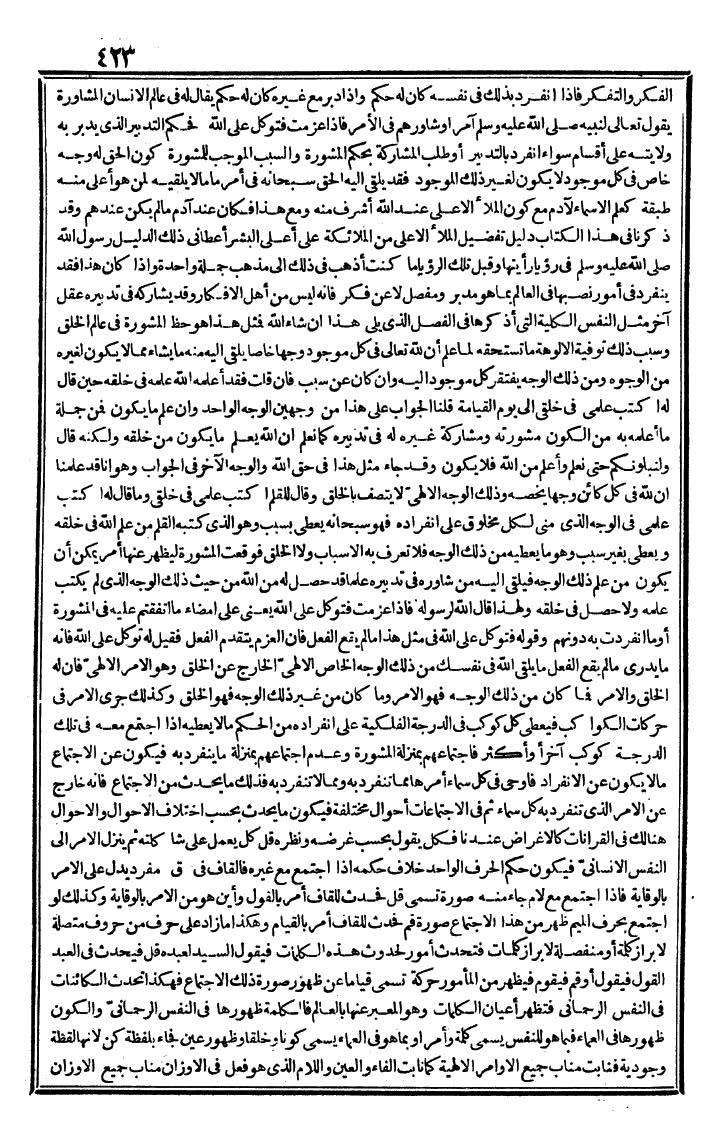 ٤٢٣
الفكر والتفكر فاذا انفرد بذلك فى نفسه كان له حكم واذا دبر مع غيره كان له حكم يقال له فى عالم الانسان المشاورة
يقول تعالى لنبيه صلى الله عليه وسلم آمرا وشاورهم فى الأمر فاذا عزمت فتوكل على الله فحكم التدبير الذى يدبر به
ولايته على أقسام سواء انفرد بالتدبير أو طلب المشاركة بحكم المشورة والسبب الموجب للمشورة كون الحق له وجه
خاص فى كل موجود لا يكون لغير ذلك الموجود فقد يلقى اليه الحق سبحانه فى أمر ما مالا يلقيه لمن هو أعلى منه
طبقة كعلم الاسماء لآدم مع كون الملأ الاعلى عند الله أشرف منه ومع هذا فكان عند آدم مالم يكن عندهم وقد
ذكرنا فى هذا الكتاب دليل تفضيل الملأ الاعلى من الملائكة على أعلى البشر أعطانى ذلك الدليل رسول الله
صلى الله عليه وسلم فى رؤيا رأيتها وقبل تلك الرؤيا ما كنت أذهب فى ذلك الى مذهب جملة واحدة واذا كان هذا فقد
ينفرد فى أمور نصبها فى العالم بما هو مدبر ومفصل لا عن فكر فانه ليس من أهل الافكار وقد يشاركه فى تدبيره عقل
آخر مثل النفس الكلية التى أذكرها فى الفصل الذى يلى هذا ان شاء الله فمثل هذا هو حظ المشورة فى عالم الخلق
وسبب ذلك توفية الالوهة ما تستحقه لما علم أن لله تعالى فى كل موجود وجها خاصا يلقى اليه منه ما يشاء مما لا يكون لغيره
من الوجوه ومن ذلك الوجه يفتقر كل موجود اليه وان كان عن سبب فان قلت فقد أعلمه الله علمه فى خلقه حين قال
له اكتب علمى فى خلقى الى يوم القيامة قلنا الجواب على هذا من وجهين الوجه الواحد وان علم ما يكون فمن جملة
ما أعلمه به من الكون مشورته ومشاركة غيره له فى تدبيره كما نعلم ان الله يعلم ما يكون من خلقه ولكنه قال
ولنبلونكم حتى نعلم وأعلم من الله فلا يكون وقد جاء مثل هذا فى حق الله والوجه الآخر فى الجواب وهو انا قد علمنا
ان لله فى كل كائن وجها يخصه وذلك الوجه الالهىّ لا يتصف بالخلق وقال للقلم اكتب علمى فى خلقى وما قال له اكتب
علمى فى الوجه الذى منى لكل مخلوق على انفراده فهو سبحانه يعطى بسبب وهو الذى كتبه القلم من علم الله فى خلقه
ويعطى بغير سبب وهو ما يعطيه من ذلك الوجه فلا تعرف به الاسباب ولا الخلق فوقعت المشورة ليظهر عنها أمر يمكن أن
يكون من علم ذلك الوجه فيلقى اليه من شاوره فى تدبيره علما قد حصل له من الله من حيث ذلك الوجه الذى لم يكتب
علمه ولا حصل فى خلقه ولهذا قال الله لرسوله فاذا عزمت فتوكل على الله يعنى على امضاء ما اتفقتم عليه فى المشورة
أو ما انفردت به دونهم وقوله فتوكل على الله فى مثل هذا مالم يقع الفعل فان العزم يتقدم الفعل فقيل له توكل على الله فانه
ما يدرى مالم يقع الفعل ما يلقى الله فى نفسك من ذلك الوجه الخاص الالهىّ الخارج عن الخلق وهو الامر الالهىّ فان له
الخلق والامر فما كان من ذلك الوجه فهو الامر وما كان من غير ذلك الوجه فهو الخلق وكذلك جرى الامر فى
حركات الكواكب فيعطى كل كوكب فى الدرجة الفلكية على انفراده من الحكم مالا يعطيه اذا اجتمع معه فى تلك
الدرجة كوكب آخر أو أكثر فاجتماعهم بمنزلة المشورة وعدم اجتماعهم بمنزلة ما ينفرد به فيكون عن الاجتماع
مالا يكون عن الانفراد فاوحى فى كل سماء أمرها مما تنفرد به ومما لا تنفرد به فذلك ما يحدث من الاجتماع فانه خارج
عن الامر الذى تنفرد به كل سماء ثم فى الاجتماعات أحوال مختلفة فيكون ما يحدث بحسب اختلاف الاحوال والاحوال
هنالك فى القرانات كالاغراض عندنا فكل يقول بحسب غرضه ونظره قل كل يعمل على شاكلته ثم ينزل الامر الى
النفس الانسانىّ فيكون حكم الحرف الواحد خلاف حكمه اذا اجتمع مع غيره فالقاف فى ق مفرد يدل على الامر
بالوقاية فاذا اجتمع مع لام جاء منه صورة تسمى قل فحدث للقاف أمر بالقول وأين هو من الامر بالوقاية وكذلك لو
اجتمع بحرف الميم ظهر من هذا الاجتماع صورة قم فحدث للقاف أمر بالقيام وهكذا ما زاد على حرف من حروف متصلة
لابراز كلمة أو منفصلة لابراز كلمات فتحدث أمور لحدوث هذه الكلمات فيقول السيد لعبده قل فيحدث فى العبد
القول فيقول أو قم فيقوم فيظهر من المأمور حركة تسمى قياما عن ظهور صورة ذلك الاجتماع فهكذا تحدث الكائنات
فى النفس الرحمانى فتظهر أعيان الكلمات وهو المعبر عنها بالعالم فالكلمة ظهورها فى النفس الرحمانىّ والكون
ظهورها فى العماء فبما هو للنفس يسمى كلمة وأمر او بما هو فى العماء يسمى كونا وخلقا وظهور عين فجاء بلفظة كن لانها لفظة
وجودية فنابت مناب جميع الاوامر الالهية كما نابت الفاء والعين واللام الذى هو فعل فى الاوزان مناب جميع الاوزان